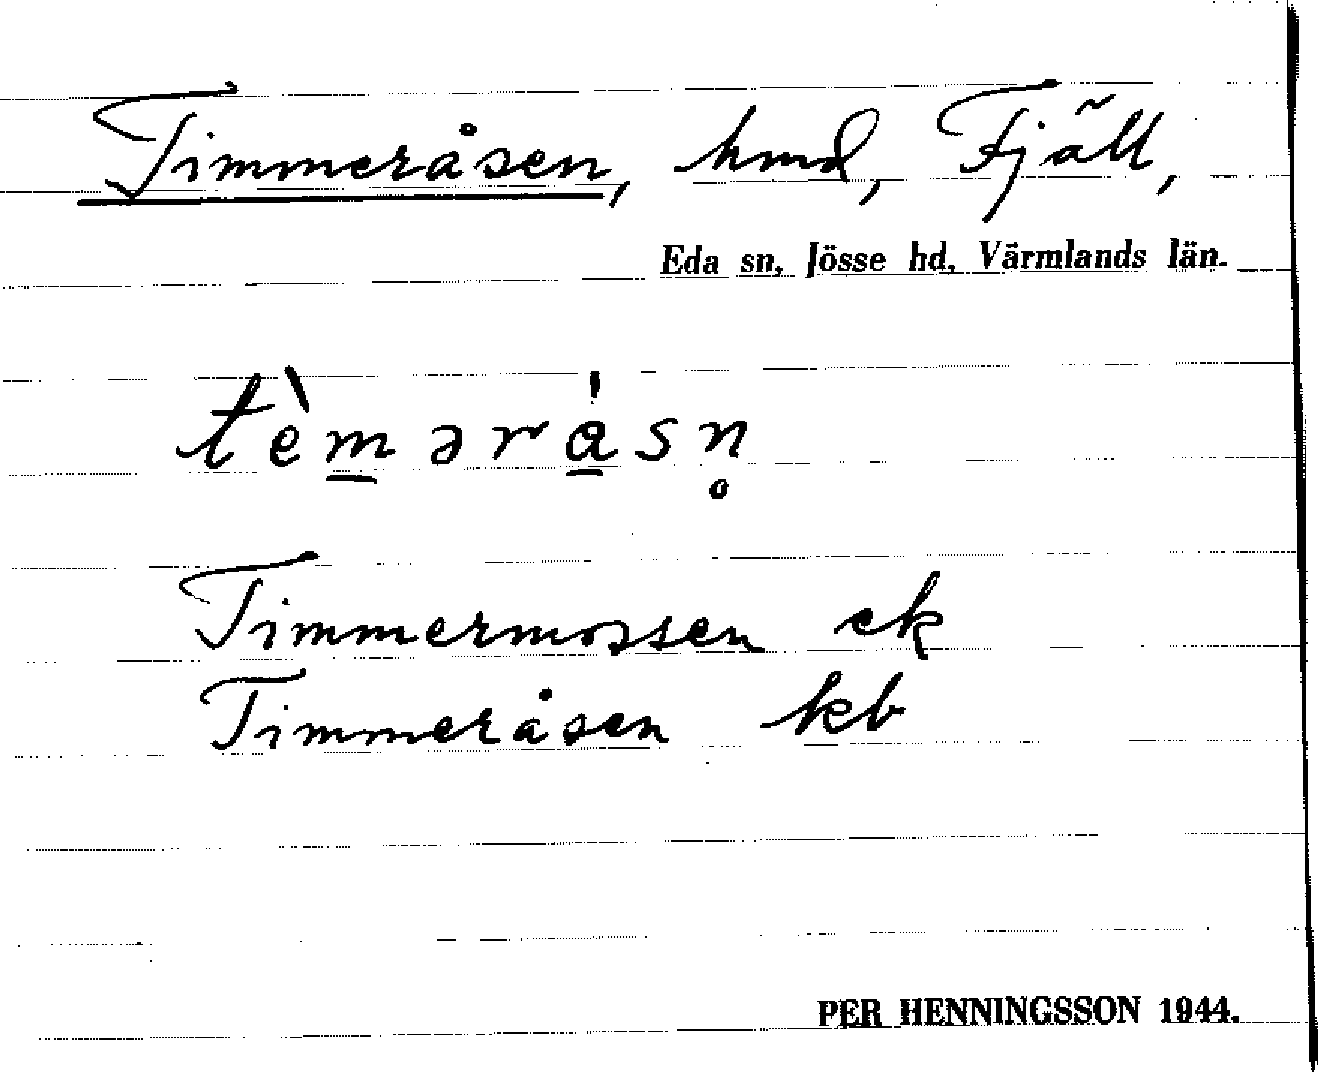 Timmeråsen, hmd, Fjäll,
Eda sn, Jösse hd, Värmlands län.
tèm̲ərá̲sn̥
Timmermossen ek
Timmeråsen kb
PER HENNINGSSON 1944.